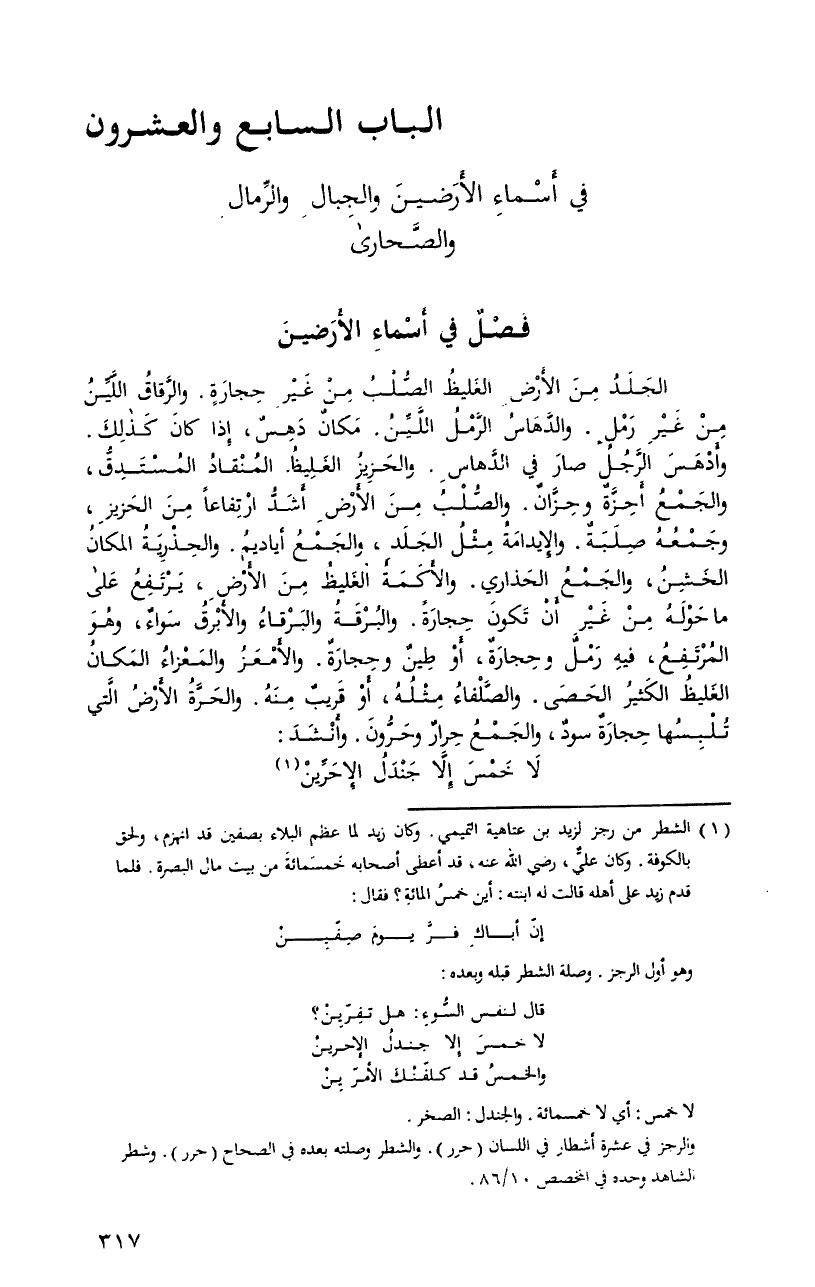 الباب السابع والعشرون
في أَسْماءِ الأَرَضينَ والجِبالِ والرِّمالِ
والصَّحارىٰ
فَصْلٌ في أَسْماءِ الأَرَضينَ
الجَلَدُ مِنَ الأَرْضِ الغَليظُ الصُّلْبُ مِنْ غَيْرِ حِجارَةٍ. والرَّقاقُ اللَّيِّنُ
مِنْ غَيْرِ رَمْلٍ. والدَّهَاسُ الرَّمْلُ اللَّيِّنُ. مَكانٌ دَهِسٌ، إِذا كانَ كَذٰلِكَ.
وأَدْهَسَ الرَّجُلُ صارَ في الدَّهاسِ. والحَزيزُ الغَلِيظُ. المُنْقادُ المُسْتَدِقُّ،
والجَمْعُ أَحِزَّةٌ وحِزَّانٌ. والصُّلْبُ مِنَ الأَرْضِ أَشَدُّ ارْتِفاعاً مِنَ الحَزيزِ،
وجَمْعُهُ صِلَبَةٌ. والإِيدامَةُ مِثْلُ الجَلَدِ، والجَمْعُ أَياديمُ. والحِذْرِيَةُ المكانُ
الخَشِنُ، والجَمْعُ الحَذاري. والأَكَمَةُ الغَليظُ مِنَ الأَرْضِ، يَرْتَفِعُ عَلىٰ
ما حَوْلَهُ مِنْ غَيْرِ أَنْ تَكونَ حِجارَةً. والبُرْقَةُ والبَرْقاءُ والأَبْرَقُ سَواءٌ، وهُوَ
المُرْتَفِعُ، فيهِ رَمْلٌ وحِجارَةٌ، أَوْ طِينٌ وحِجارَةٌ. والأَمْعَزُ والمَعْزاءُ المَكانُ
الغَليظُ الكَثيرُ الحَصَى. والصَّلْفاءُ مِثْلُهُ، أَوْ قَريبٌ مِنهُ. والحَرَّةُ الأَرْضُ الَّتي
تُلْبِسُها حِجارَةٌ سودٌ، والجَمْعُ حِرارٌ وحَرُّونَ. وأَنْشَدَ:
لَا خَمْسَ إِلَّا جَنْدَلُ الإِحَرِّينْ(١)
(١) الشطر من رجز لزيد بن عتاهية التميمي. وكان زيد لما عظم البلاء بصفين قد انهزم، ولحق
بالكوفة. وكان عليٌّ، رضي الله عنه، قد أعطى أصحابه خَمسَمائةَ من بيت مال البصرة. فلما
قدم زيد على أهله قالت له ابنته: أين خمسُ المائةِ؟ فقال:
إنّ أباكِ فرَّ يومَ صفّيِنْ
وهو أول الرجز. وصلة الشطر قبله وبعده:
قال لنفس السُّوءِ: هل تفِرّينْ؟
لا خمسَ إلا جندلُ الإحرينْ
والخمسُ قد كلفنْكَ الأمرّ يِنْ
لا خمس: أي لا خمسمائة. والجندل: الصخر.
والرجز في عشرة أشطار في اللسان (حرر). والشطر وصلته بعده في الصحاح (حرر). وشطر
الشاهد وحده في المخصص ٨٦/١٠.
٣١٧